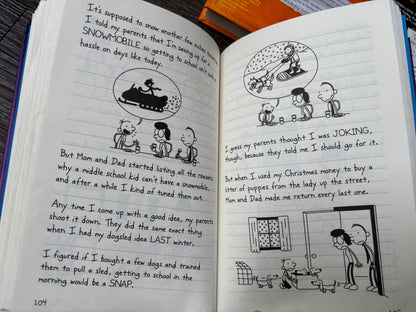 It's supposed to snow another few inches tonight.
I told my parents that I'm saving up for a
SNOWMOBILE so getting to school isn't such a
hassle on days like today.
But Mom and Dad started listing all the reasons
why a middle school kid can't have a snowmobile,
and after a while I kind of tuned them out.
Any time I come up with a good idea, my parents
shoot it down. They did the same exact thing
when I had my dogsled idea LAST winter.
I figured if I bought a few dogs and trained
them to pull a sled, getting to school in the
morning would be a SNAP.
104
I guess my parents thought I was JOKING,
though, because they told me I should go for it.
But when I used my Christmas money to buy a
litter of puppies from the lady up the street,
Mom and Dad made me return every last one.